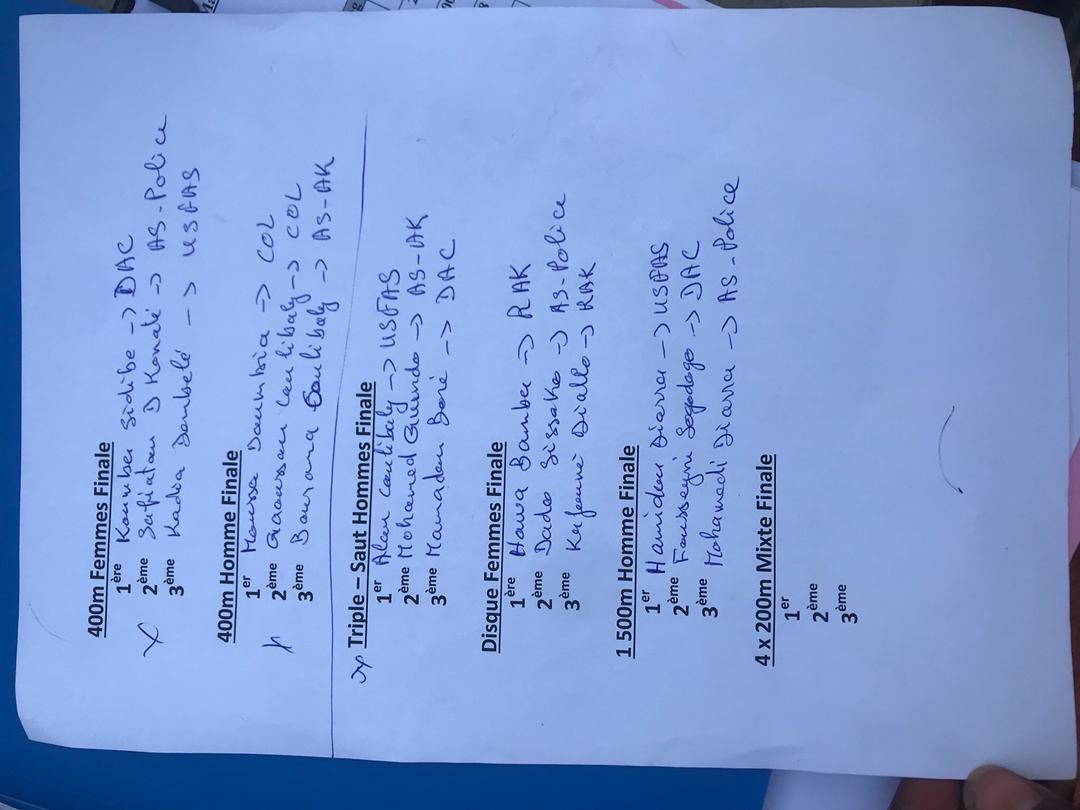 400m Femmes Finale
1ère Koumba Sidibe -> DAC
2ème Safiatou D Konaté -> AS-Police
3ème Kadia Dembelé -> USFAS
400m Homme Finale
1er Moussa Doumbia -> COL
2ème Gaoussou Coulibaly -> COL
3ème Bourama Coulibaly -> AS-AK
Triple – Saut Hommes Finale
1er Alou Coulibaly -> USFAS
2ème Mohamed Guindo -> AS-AK
3ème Mamadou Boré -> DAC
Disque Femmes Finale
1ère Hawa Bamba -> RAK
2ème Dado Sissako -> AS-Police
3ème Diallo -> RAK
1 500m Homme Finale
1er Hamidou Diarra -> USFAS
2ème Fousseyni Sogodogo -> DAC
3ème Mohamedi Diarra -> AS-Police
4 x 200m Mixte Finale
1er
2ème
3ème